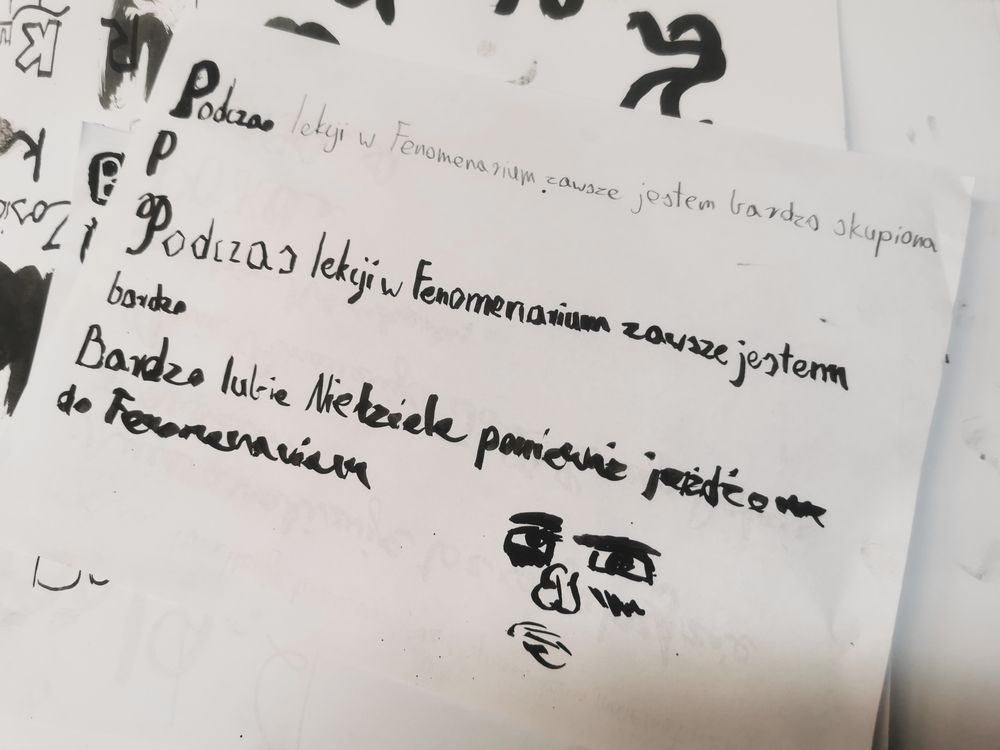 Podczas lekyji w Fenomenarium zawsze jestem bardzo skupiona
P
Podczas lekyji w Fenomenarium zawsze jestem
bardzo
Bardzo lubie Niedziele poniewaź jeżdżę
do Fenomenarium